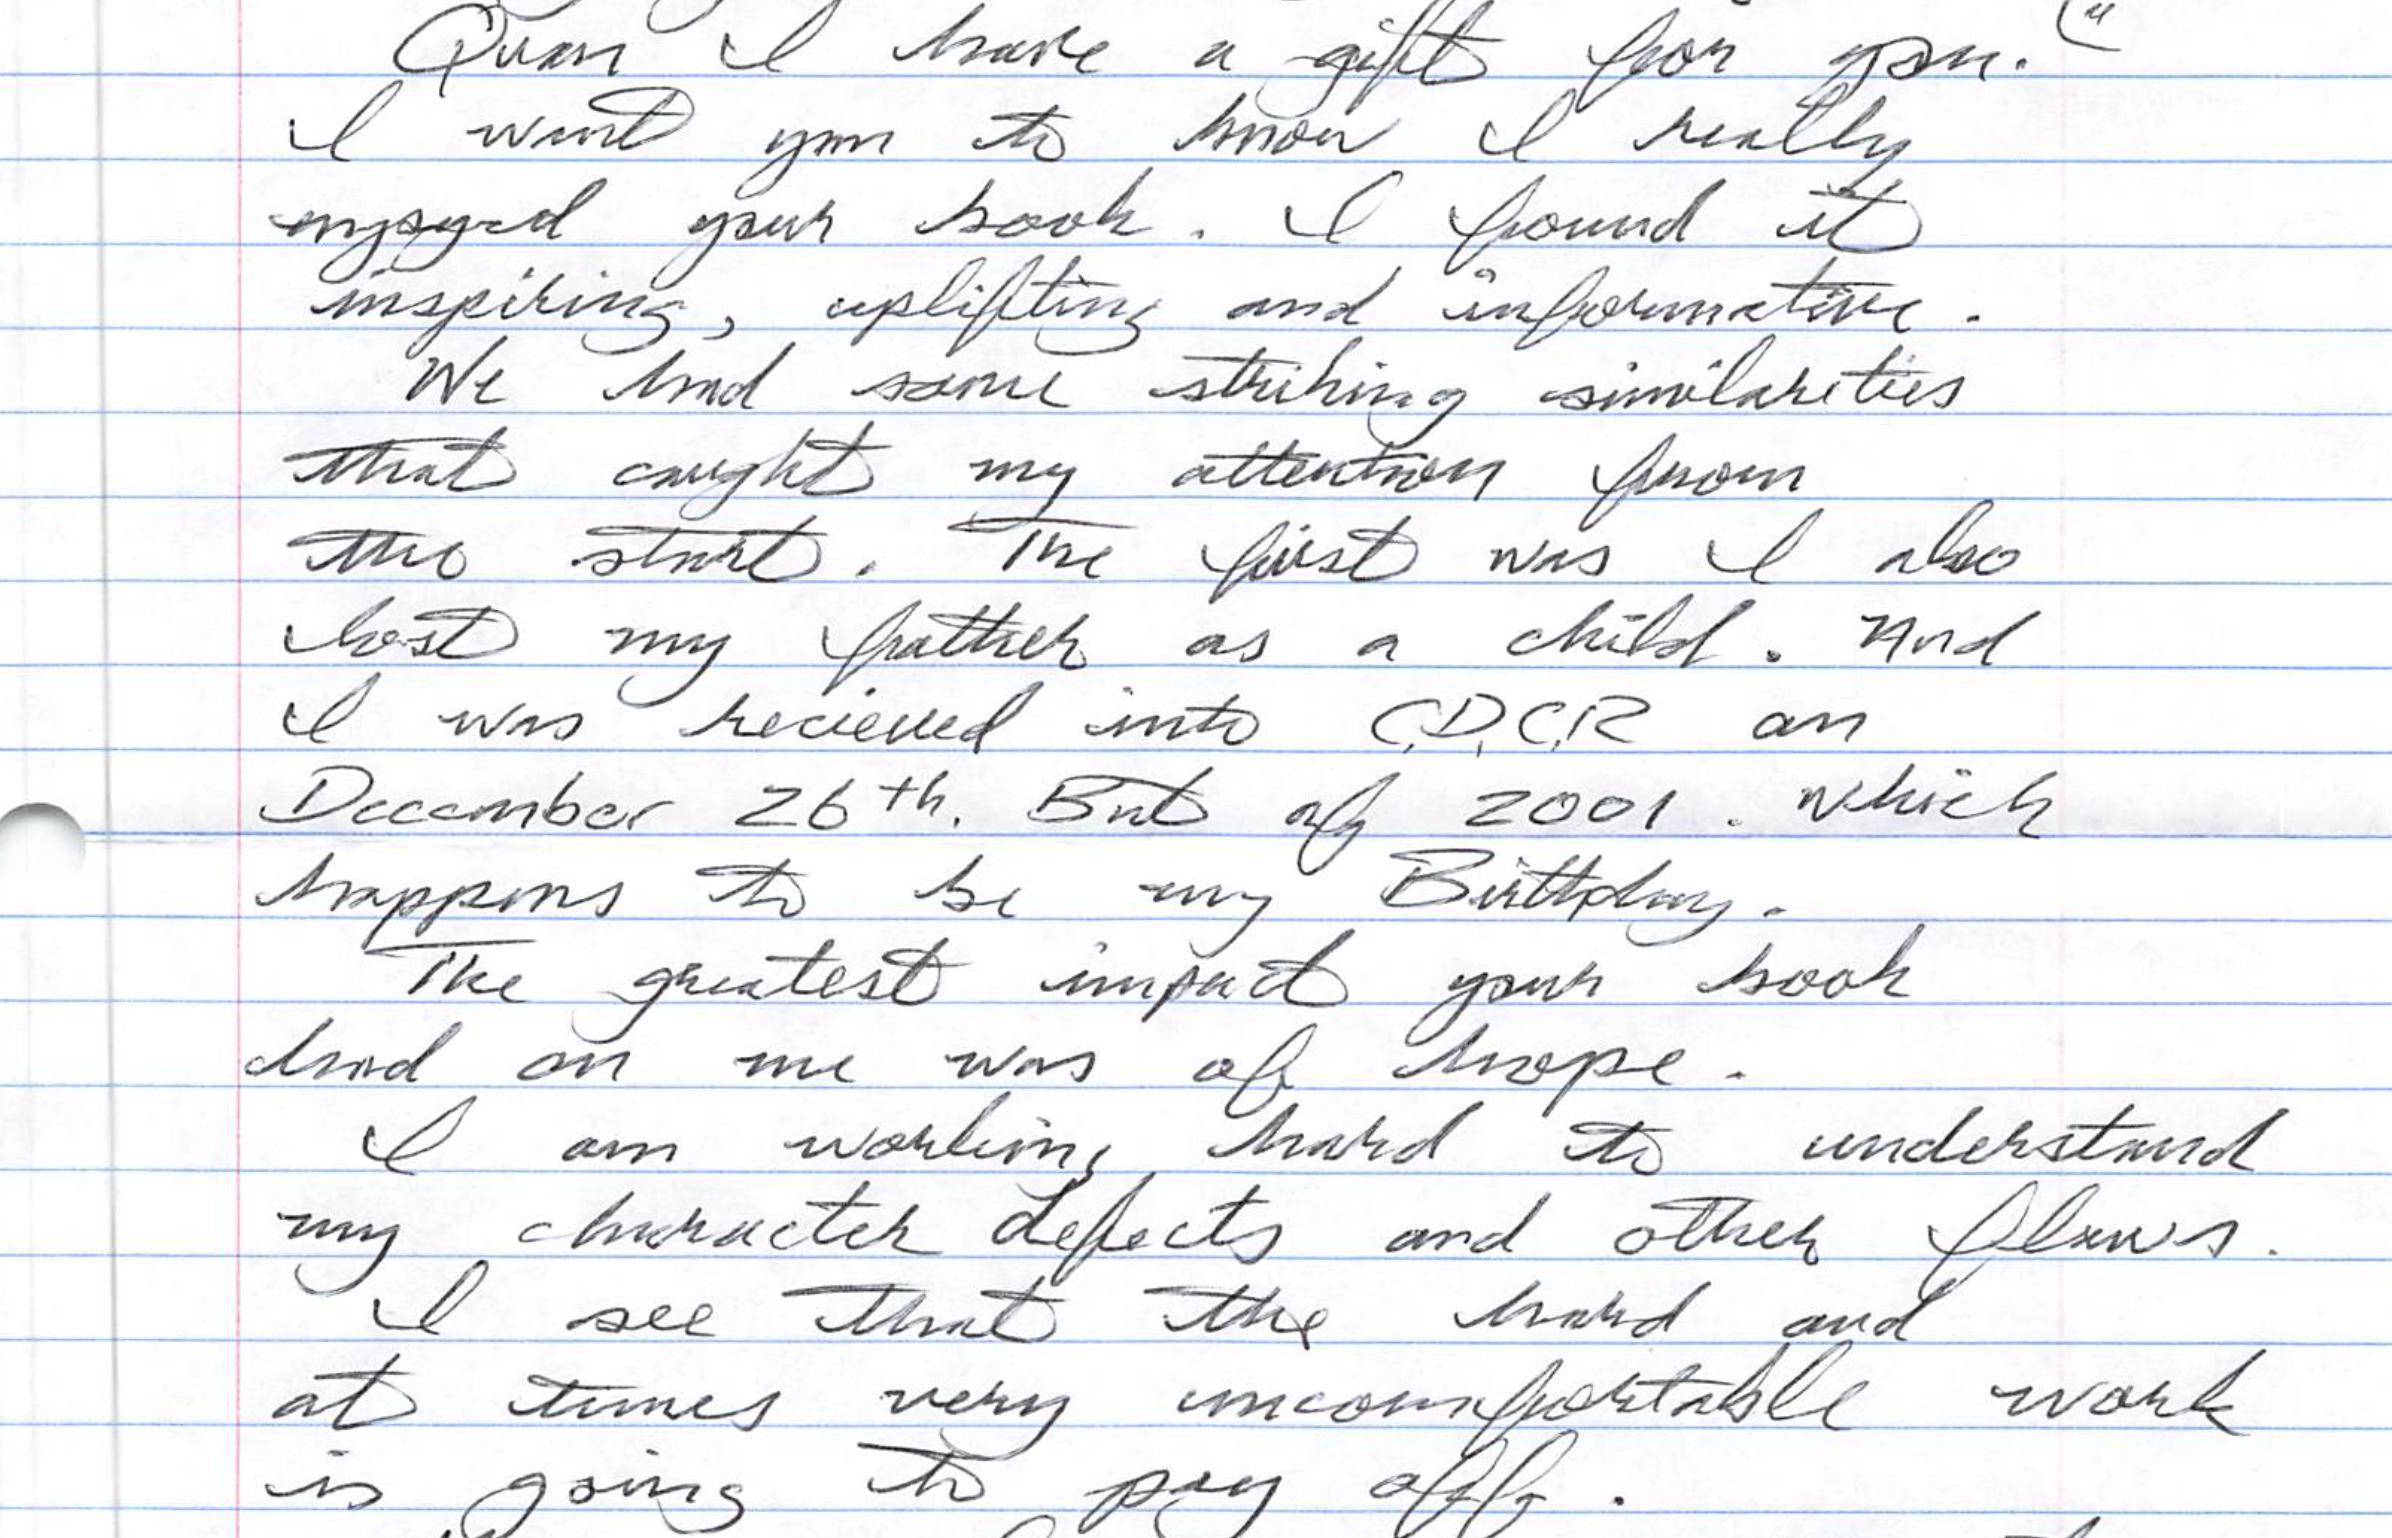 Quan I have a gift for you."
I want you to know I really
enjoyed your book. I found it
inspiring, uplifting and informative.
We had some striking similarities
that caught my attention from
the start. The first was I also
lost my father as a child. And
I was recieved into C.D.C.R on
December 26th. But of 2001. which
happens to be my Birthday.
The greatest impact your book
had on me was of hope.
I am working hard to understand
my character defects and other flaws.
I see that the hard and
at times very uncomfortable work
is going to pay off.